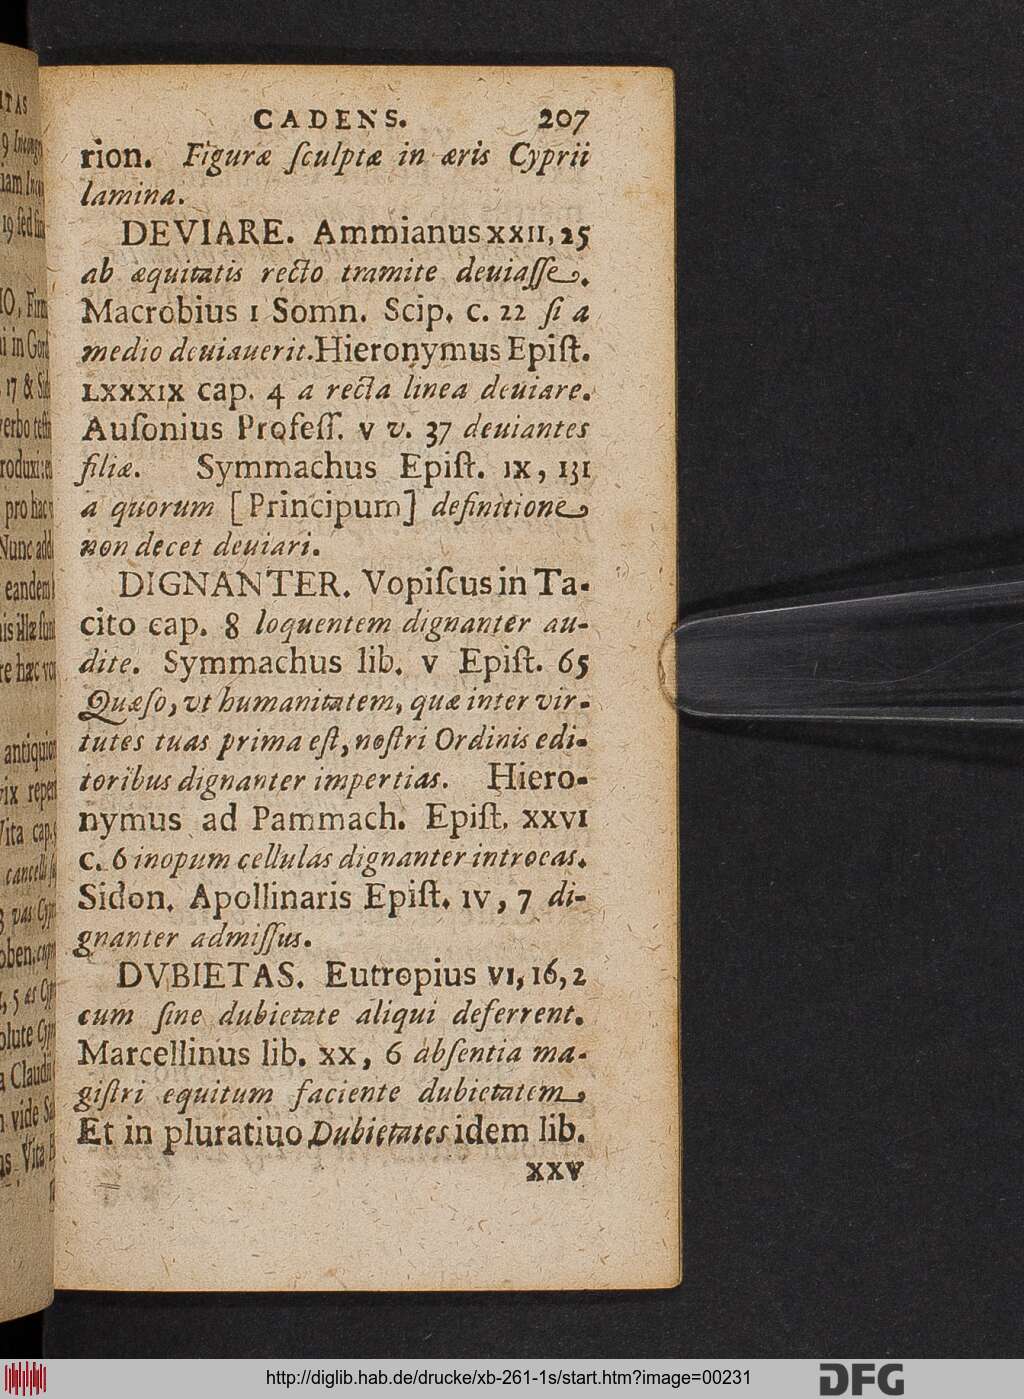 CADENS. 207
rion. Figuræ ſculptæ in æris Cyprii
lamina.
DEVIARE. Ammianus XXII, 25
ab æquitatis recto tramite deuiaſſe.
Macrobius I Somn. Scip. c. 22 ſi a
medio deuiauerit. Hieronymus Epiſt.
LXXXIX cap. 4 a recta linea deuiare.
Auſonius Profeſſ. V v. 37 deuiantes
filiæ. Symmachus Epiſt. IX, 131
a quorum [Principum] definitione
non decet deuiari.
DIGNANTER. Vopiſcus in Ta-
cito cap. 8 loquentem dignanter au-
dite. Symmachus lib. V Epiſt. 65
Quæſo, vt humanitatem, quæ inter vir-
tutes tuas prima eſt, noſtri Ordinis edi-
toribus dignanter impertias. Hiero-
nymus ad Pammach. Epiſt. XXVI
c. 6 inopum cellulas dignanter introeas.
Sidon. Apollinaris Epiſt. IV, 7 di-
gnanter admiſſus.
DVBIETAS. Eutropius VI, 16, 2
cum ſine dubietate aliqui deferrent.
Marcellinus lib. XX, 6 abſentia ma-
giſtri equitum faciente dubietatem,
Et in pluratiuo Dubietates idem lib.
XXV
http://diglib.hab.de/drucke/xb-261-1s/start.htm?image=00231
DFG